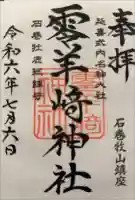 奉拝
石巻牧山鎮座
延喜式内名神大社
零羊崎神社
石巻牡鹿総鎮守
令和六年七月六日